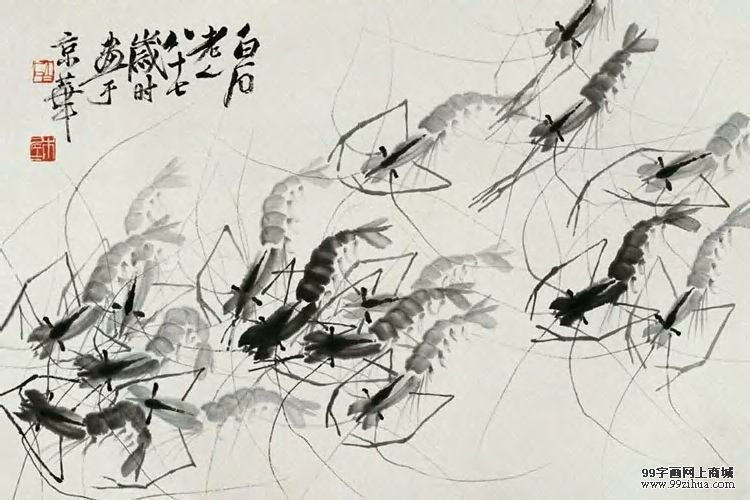 白石
老人
八十七
歲时
画于
京華
99字画网上商城
www.99zihua.com